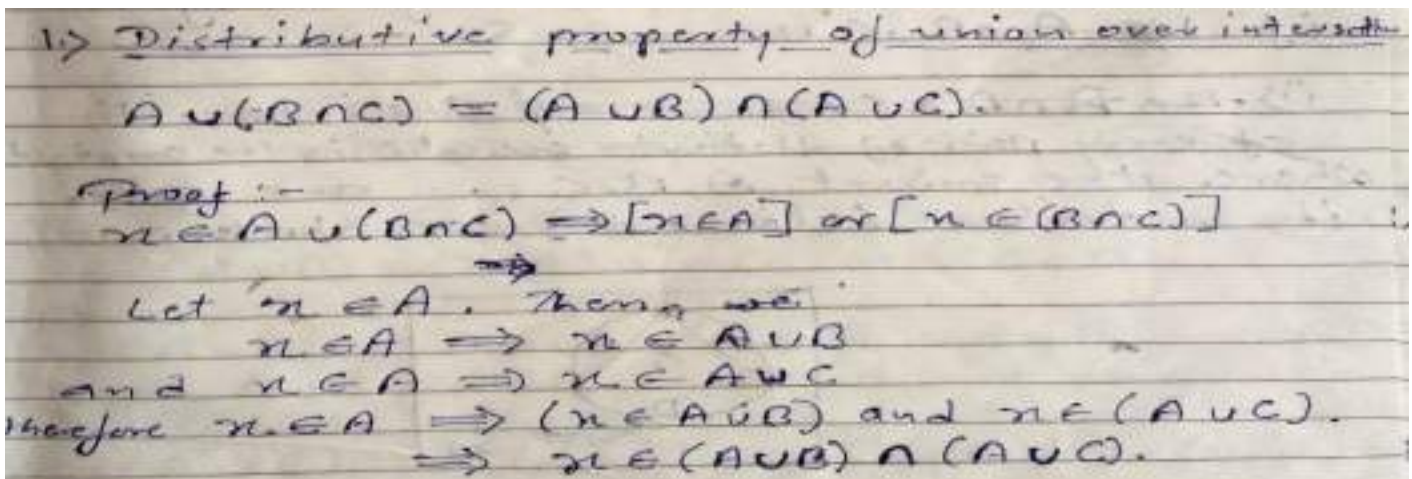 1.> Distributive property of union over intersectn
A ∪ (B ∩ C) = (A ∪ B) ∩ (A ∪ C).
Proof :-
x ∈ A ∪ (B ∩ C) ⇒ [x ∈ A] or [x ∈ (B ∩ C)]
⇒
Let x ∈ A . Then,
x ∈ A ⇒ x ∈ A ∪ B
and x ∈ A ⇒ x ∈ A ∪ C
therefore x ∈ A ⇒ (x ∈ A ∪ B) and x ∈ (A ∪ C).
⇒ x ∈ (A ∪ B) ∩ (A ∪ C).